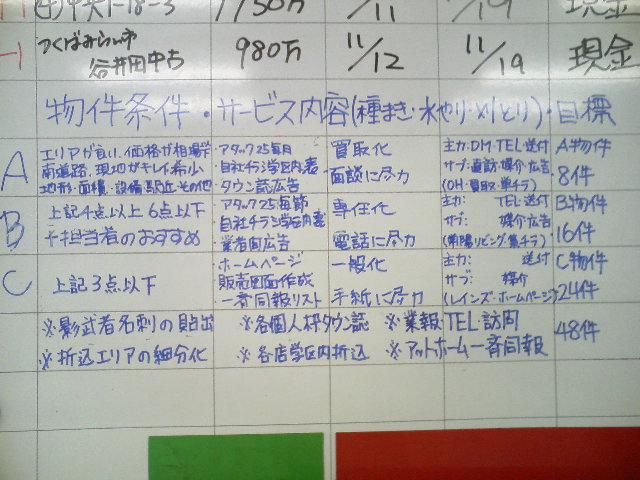 中央1-18-3 1750万 11/11 /19 現金
つくばみらい市 11/ 11/
谷井田中古 980万 12 19 現金
物件条件・サービス内容(種まき・水やり・メリとり)・目標
A エリアが良い、価格が相場 アタック25毎月 買取化 主力:DM・TEL送付 A物件
南道路、現地がキレイ、希少 自社チラシ学区内表 サブ:直訪・媒介・広告
地形・面積・設備・駅近、その他 タウン誌広告 面談に尽力 (OH・買取・単チラ) 8件
B 上記4点以上6点以下 アタック25毎節 専任化 主力: TEL送付 B物件
自社チラシ学区内裏 サブ: 媒介・広告
※担当者のおすすめ 業者間広告 電話に尽力 (常陽リビング・集チラ) 16件
C ホームページ 一般化 主力: 送付 C物件
上記3点以下 販売図面作成 サブ: 媒介
一斉同報リスト 手紙に尽力 (レインズ・ホームページ) 24件
※影武者名刺の貼出 ※各個人枠タウン誌 ※業報・TEL訪問 48件
※折込エリアの細分化 ※各店学区内折込 ※アットホーム一斉同報